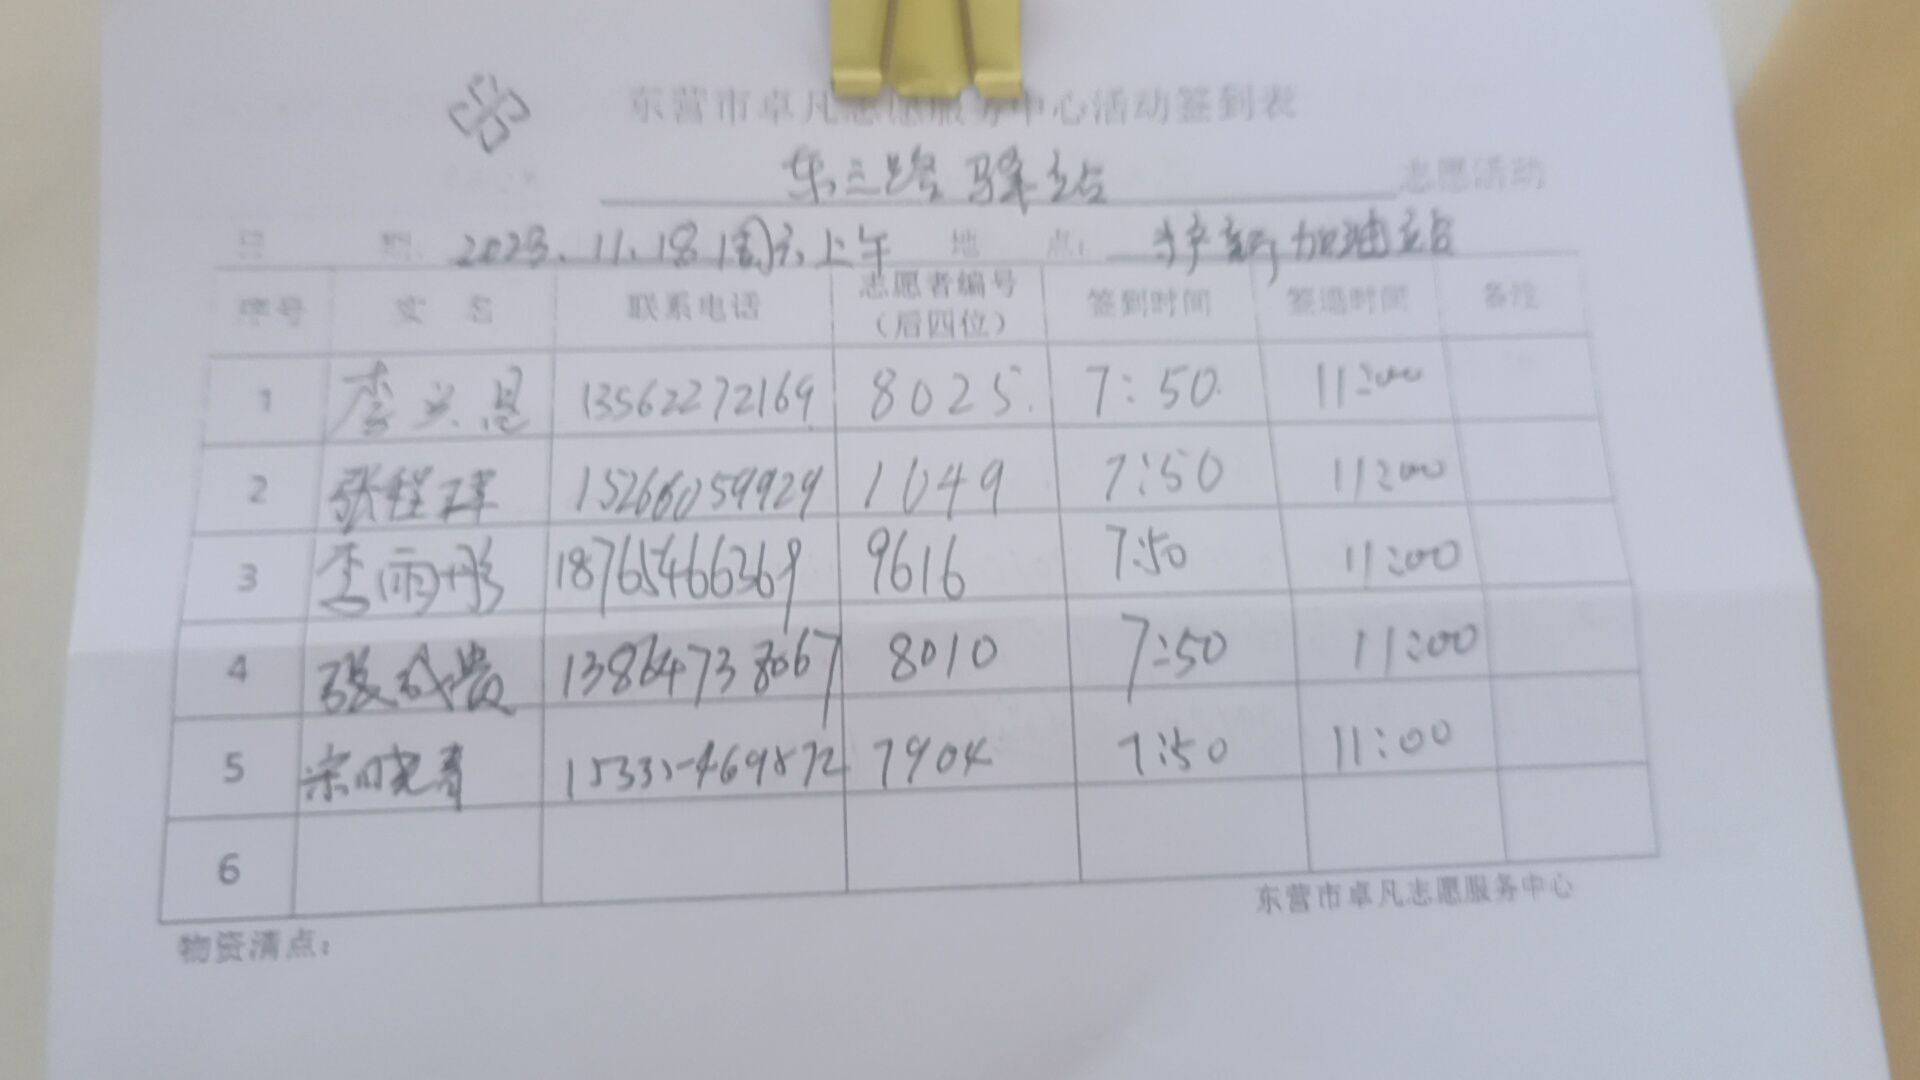 东营市卓凡志愿服务中心活动签到表
东三路驿站 志愿活动
日 期: 2023.11.18 周六上午 地 点: 加油站
序号 实 名 联系电话 志愿者编号（后四位） 签到时间 签退时间 备注
1 李兴恩 13562272169 8025 7:50 11:00
2 张程祥 15266059929 1049 7:50 11:00
3 李雨彤 18765466369 9616 7:50 11:00
4 张成贵 13864738067 8010 7:50 11:00
5 宗晓青 7904 7:50 11:00
6
东营市卓凡志愿服务中心
物资清点: